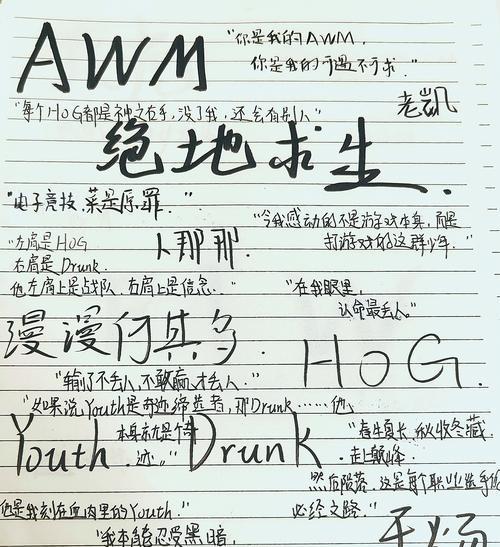 AWM
"你是我的AWM,
你是我的可遇不可求."
老凯
"每个HOG都是神之右手,没了我,还会有别人"
绝地求生.
"电子竞技,菜是原罪."
"令我感动的不是游戏本身,而是
打游戏的这群少年."
"左肩是HOG
右肩是Drunk.
他左肩上是战队,右肩上是信念."
卜那那.
"在我眼里,
认命最丢人."
漫漫何其多.
HOG.
"输了不丢人,不敢赢,才丢人."
"如果说Youth是奇迹缔造者,那Drunk……他
本身就是个奇
迹."
Youth.
Drunk
"春生夏长,秋收冬藏
.走上巅峰.
然后陨落,这是每个职业选手的
必经之路."
他是我刻在血肉里的Youth."
"我本能忍受黑暗,